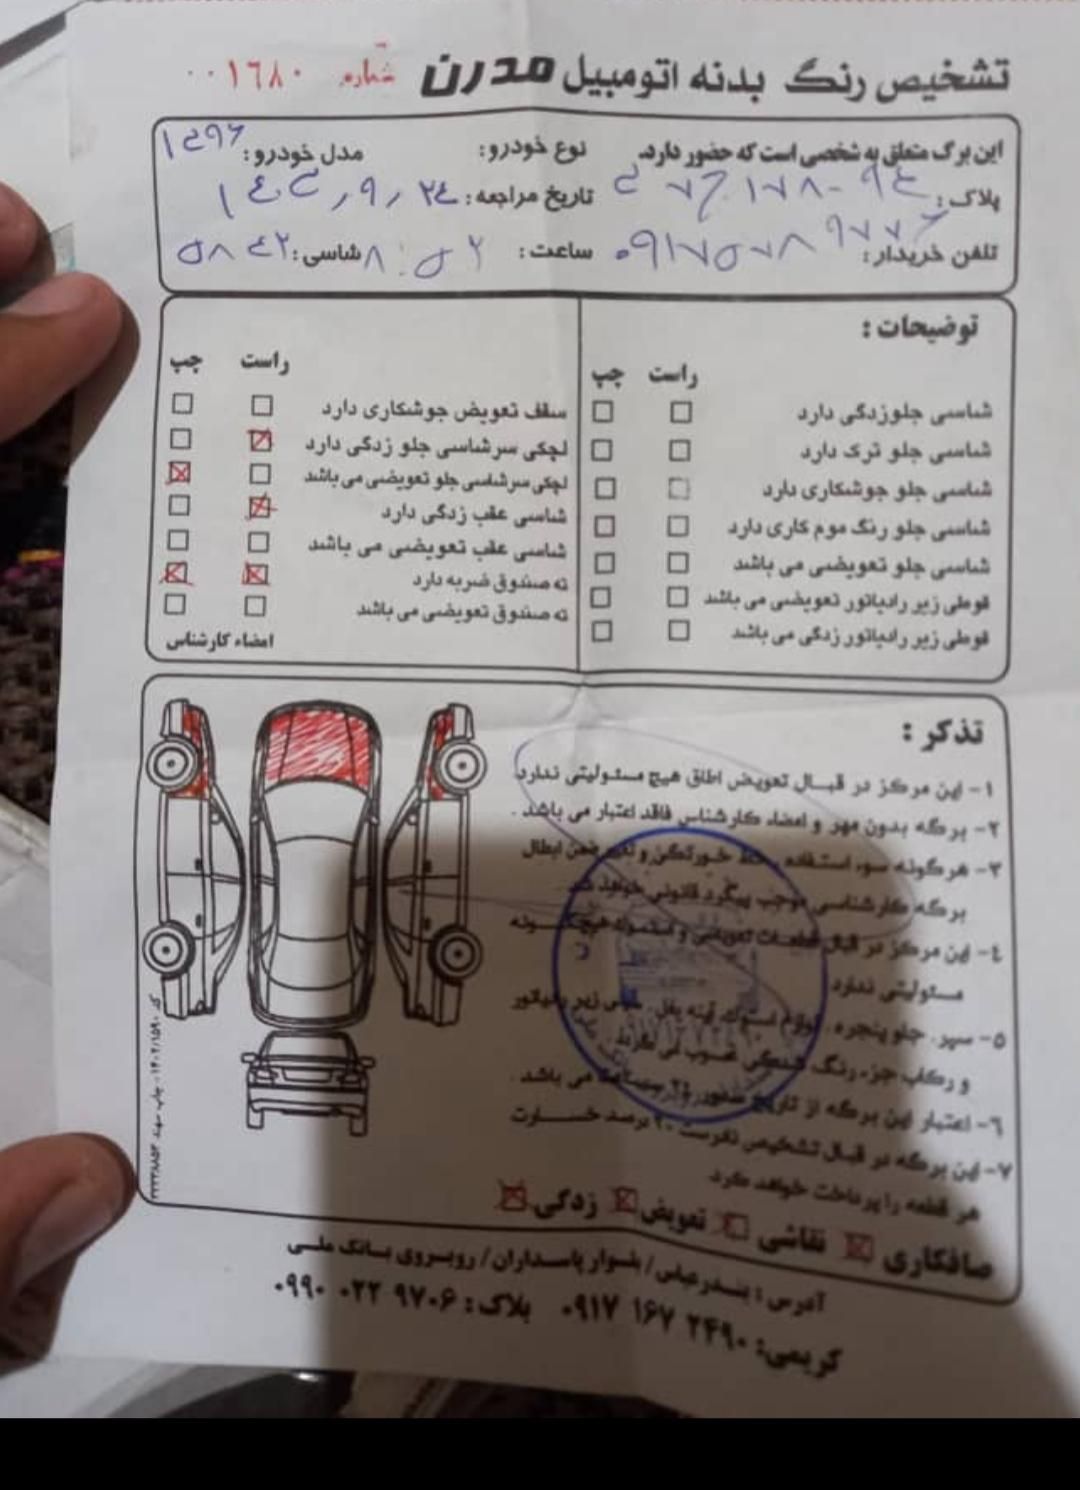 تشخیص رنگ بدنه اتومبیل مدرن شماره ۰۰۱٦٨۰
این برگ متعلق به شخصی است که حضور دارد. نوع خودرو: مدل خودرو: ۱۳۹۶
پلاک: تاریخ مراجعه:
تلفن خریدار: ساعت: ۸:۵۲ شاسی:
توضیحات:
راست چپ
شاسی جلوزدگی دارد
شاسی جلو ترک دارد
شاسی جلو جوشکاری دارد
شاسی جلو رنگ موم کاری دارد
شاسی جلو تعویضی می باشد
قوطی زیر رادیاتور تعویضی می باشد
قوطی زیر رادیاتور زدگی می باشد
راست چپ
سقف تعویض جوشکاری دارد
لچکی سرشاسی جلو زدگی دارد
لچکی سرشاسی جلو تعویضی می باشد
شاسی عقب زدگی دارد
شاسی عقب تعویضی می باشد
ته صندوق ضربه دارد
ته صندوق تعویضی می باشد
امضاء کارشناس
تذکر:
۱- این مرکز در قبـال تعویض اطاق هیچ مسئولیتی ندارد
۲- برگه بدون مهر و امضاء کارشناس فاقد اعتبار می باشد.
۳- هرگونه سوء استفاده خط خوردگی و ابطال
برگه کارشناسی موجب پیگرد قانونی خواهد شد
٤- این مرکز در قبال قطعات تعویضی و استوک هیچگـــونه
مسئولیتی ندارد
۵- سپر، جلوپنجره، لوازم استوک، آینه بغل، سینی زیر رادیاتور
و رکاب جزء رنگ شدگی محسوب نمی گردد.
٦- اعتبار این برگه از تاریخ صدور ۲٤ ساعت می باشد.
۷- این برگه در قبال تشخیص نادرست ۲۰ درصد خســارت
هر قطعه را پرداخت خواهد کرد
صافکاری نقاشی تعویض زدگی
آدرس: بندرعباس/ بلـوار پاسـداران/ روبـروی بـانک ملـی
کریمی: ۰۹۱۷ ۱۶۷ ۲۴۹۰ پلاک: ۰۹۹۰ ۰۲۲ ۹۷۰۶